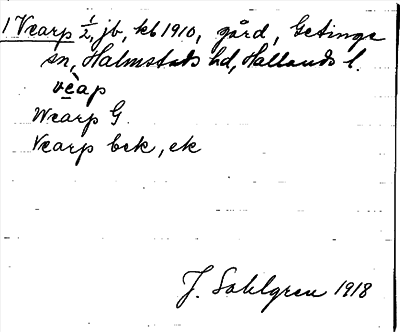 1 Vearp ½, jb, kb 1910, gård, Getinge
sn, Halmstads hd, Hallands l.
vèap
Wearp G.
Vearp bek, ek
J. Sahlgren 1918